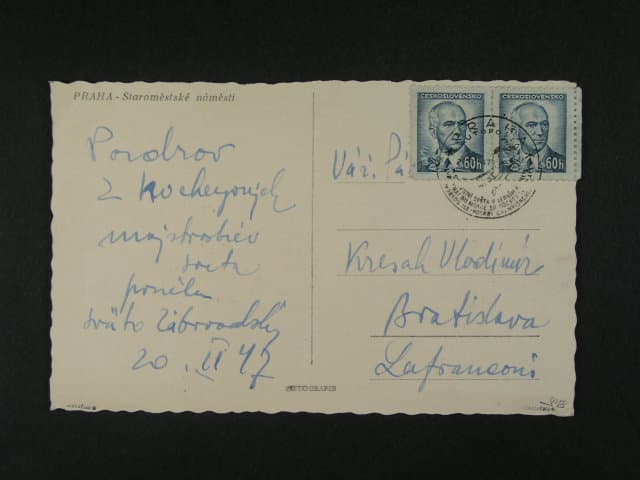 PRAHA - Staroměstské náměstí
Pozdrav
z hockeyových
majstrovstiev
sveta
posiela
Sväťo Zábrodský
20. II 47
ČESKOSLOVENSKO
60h
ČESKOSLOVENSKO
60h
PRAHA
Váž. Pá
Kresák Vladimír
Bratislava
Lafranconi
FOTOGRAFIE